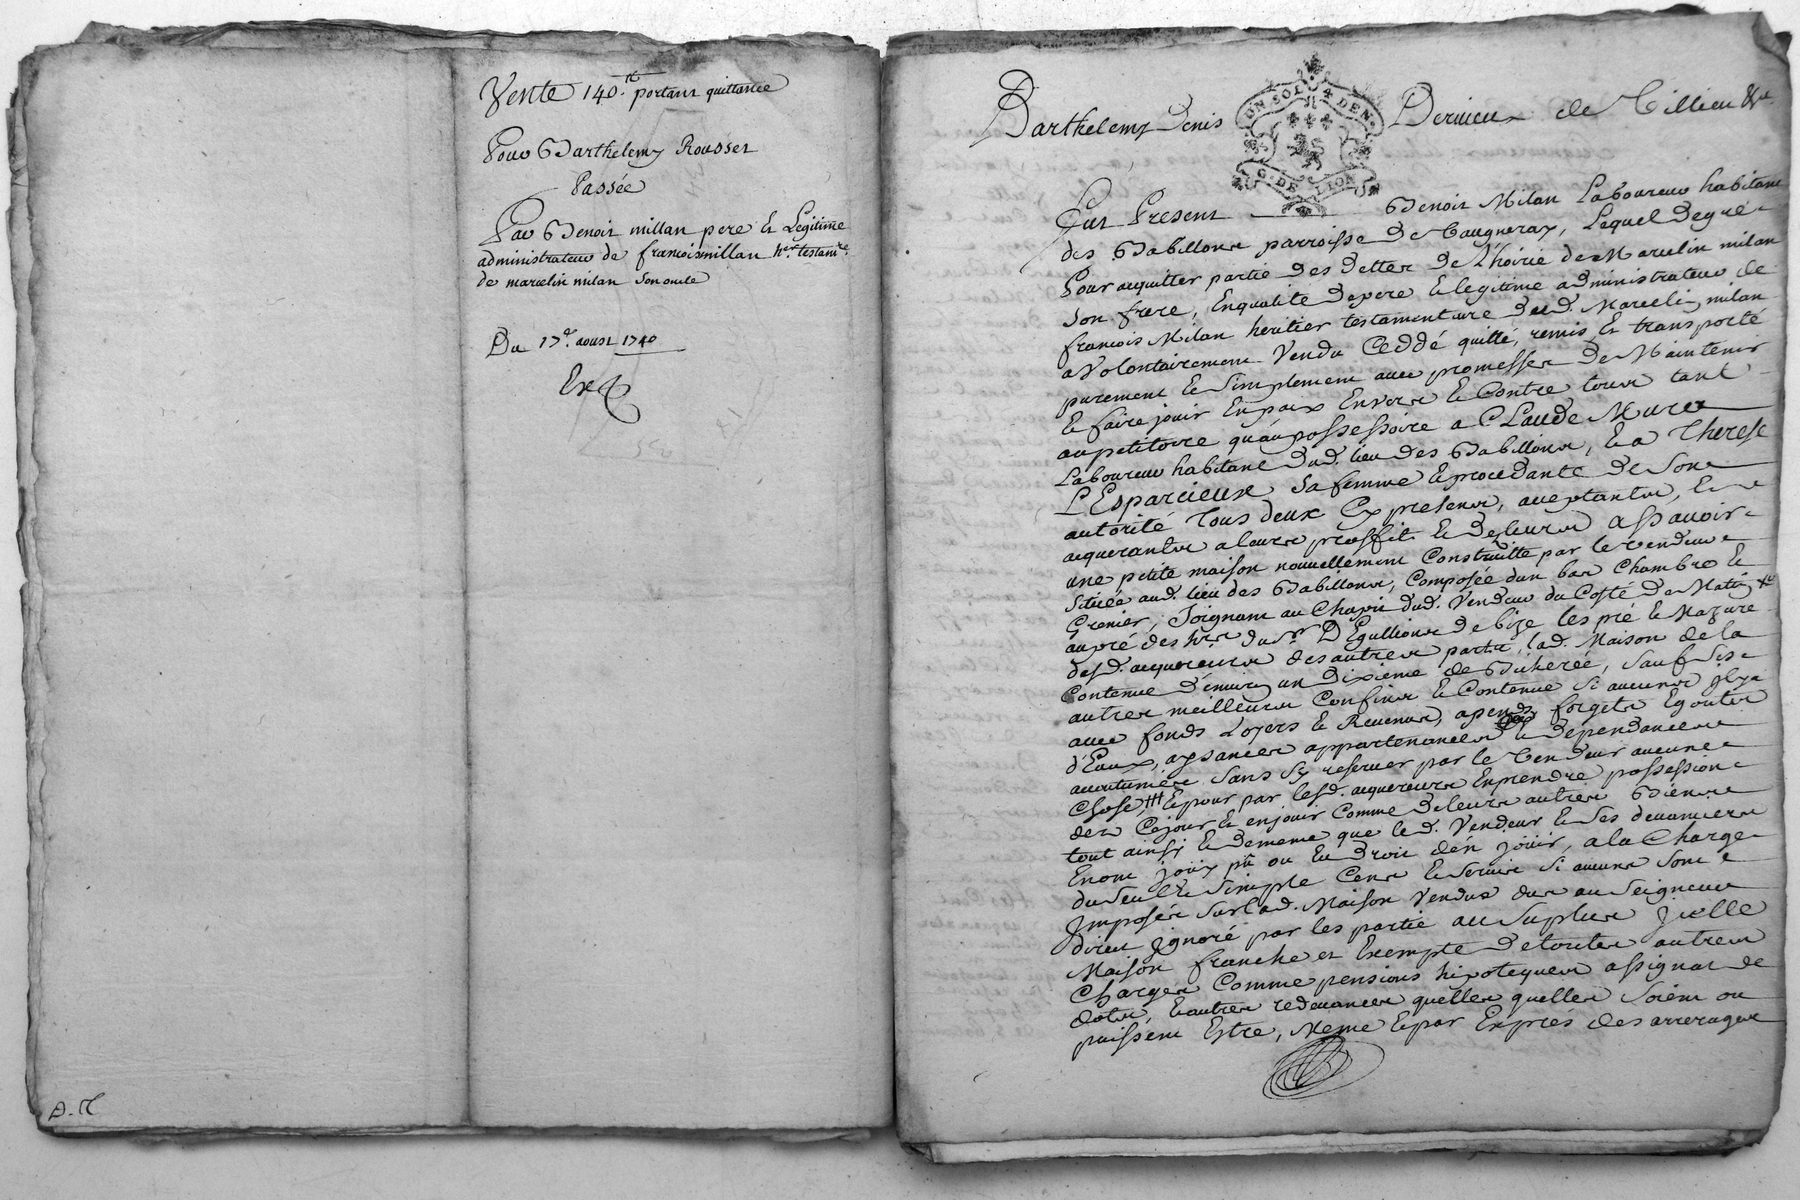 Vente 140.tt portant quittance
Pour Barthelemy Rousset
Passée
Par Benoit millan pere et Legitime
administrateur de francois millan her. testamre.
de marcelin milan son oncle
Du 17e. aoust 1740
Exp
A. R
Barthelemy Denis Dervieu de Villieu &a
UN SOL 4 DEN.
G. DE LION
Fut Present Benoit Milan Laboureur habitant
des Babillons parroisse de Vaugneray, Lequel de gré
Pour acquitter partie des dettes de l'hoirie de Marcelin milan
Son frere, En qualité de pere & legitime administrateur de
francois Milan heritier testamentaire dud. Marcelin milan
a Volontairement Vendu Ceddé quitté, remis et transporté
purement & simplement avec promesses de Maintenir
& faire jouir En paix Envers & Contre tous tant
au petitoire qu'au possessoire a Claude Muret
Laboureur habitant dud. lieu des Babillons, & a Therese
L'Esparcieux sa femme & procedante de Son
autorité Tous deux Cy presents, acceptants, &
acquerants a leurs proffit & des leurs assavoir
une petite maison nouvellement Construitte par le vendeur
Située aud. lieu des Babillons, Composée d'un bas Chambre &
Grenier, Joignant au Chapit dud. Vendeur du Costé de Matin
au pré des hers. du Sr. D'Egullions de bize les pré & Mazure
desd. acquereurs des autres partie, lad. Maison de la
Contenue d'Environ un dixieme de Bicherée, sauf ses
autres meilleurs Confins & Contenue si aucuns il y a
avec fonds Loyers & Revenus, apends forgets Egouts
d'Eaux, aysances appartenances & dependances
accoutumées sans s'y reserver par le Vendeur aucune
Chose, & pour par lesd. acquereurs En prendre possession
dez Cejour & en jouir Comme de leurs autres Biens
tout ainsy & de meme que led. Vendeur & ses devanciers
En ont jouy pû ou eu droit d'en jouir, a la Charge
du seul & simple Cens & Servis si aucuns sont
Imposés sur lad. Maison Vendue dus au Seigneur
direct ignoré par les partie au Suplus jcelle
Maison franche et Exempte de toutes autres
Charges Comme pensions hipoteques assignat de
dots, & autres redevances quelles quelles soient ou
puissent Estre, Meme & par Exprés des arrerages